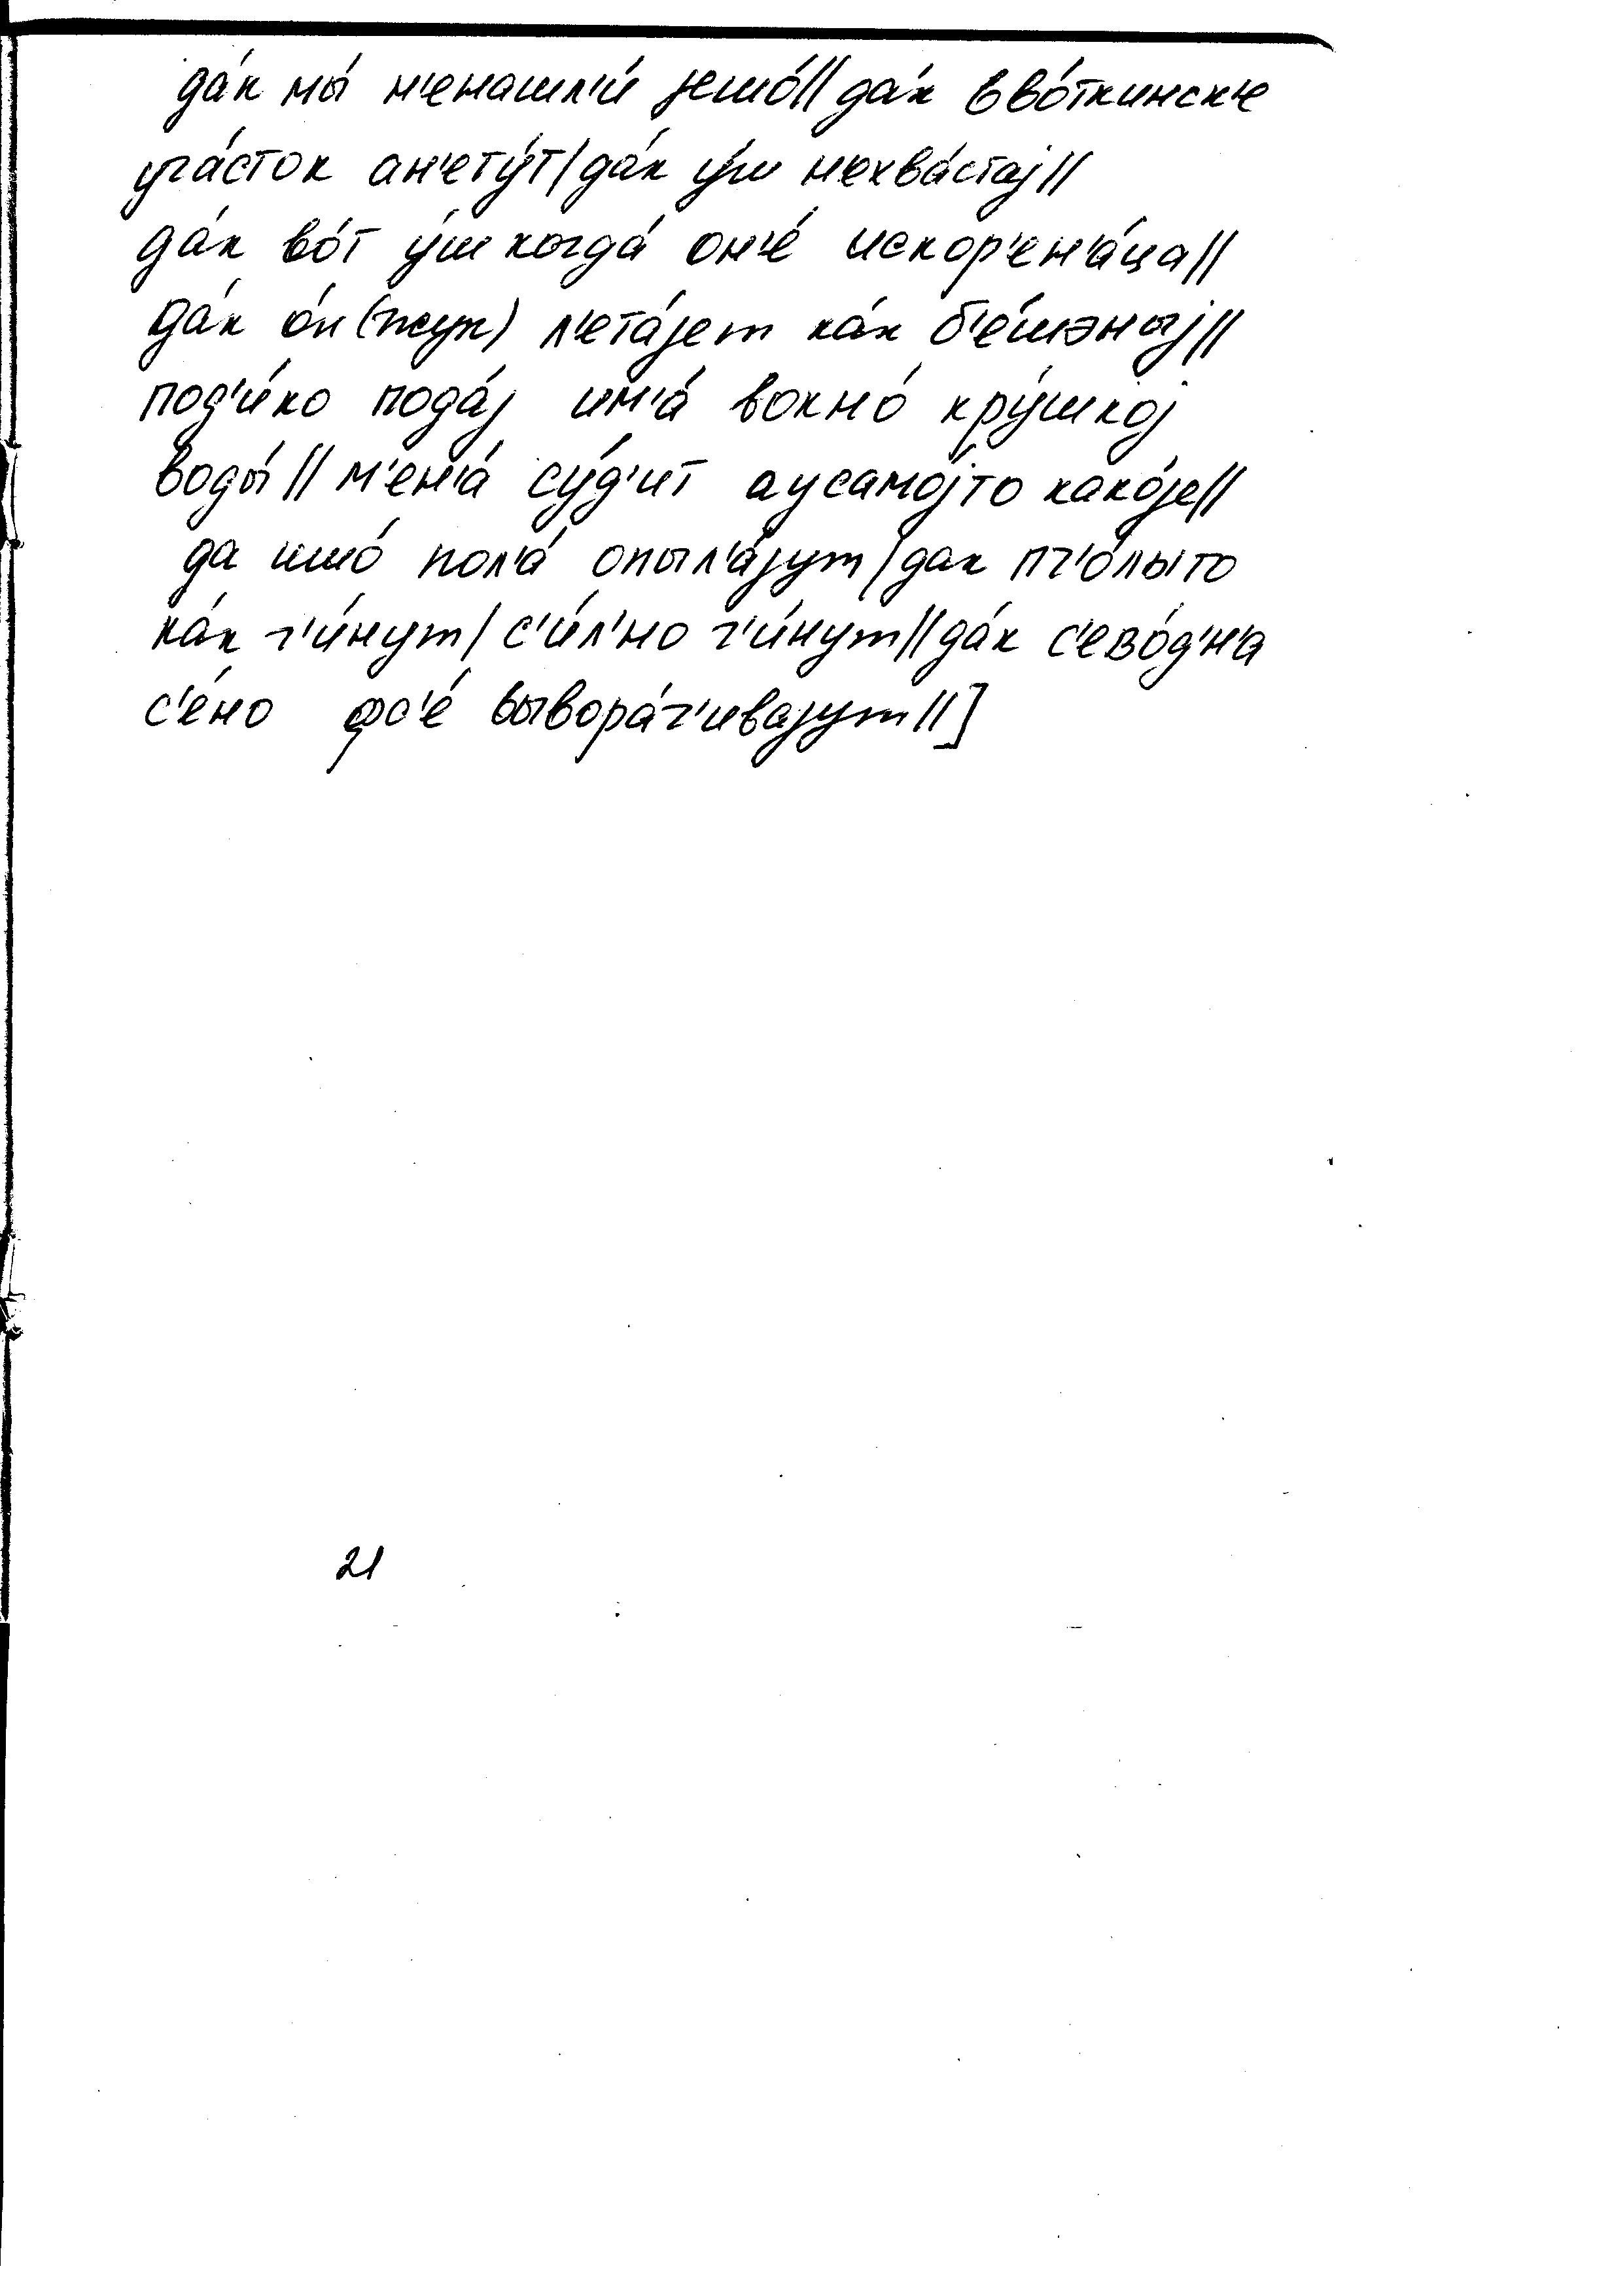 да́к мы́ н'енашл'и́ јешо́// да́к в во́ткинск'е
уча́сток ан'ету́т/ да́к у́ш нехва́стај//
да́к во́т у́ш когда́ он'е́ искор'ен'а́ца//
да́к о́н (жук) л'ета́јет ка́к б'е́шэныј//
под'и́ко пода́ј им'а́ вокно́ кру́шкој
воды́// м'ен'а́ су́д'ит аусамо́јто како́је//
да ишо́ пол'а́ опыл'а́јут/ дак пч'о́лыто
ка́к г'и́нут/ с'и́л'но г'и́нут// да́к с'ево́д'н'а
с'е́но фс'е́ вывора́ч'ивајут//]
21